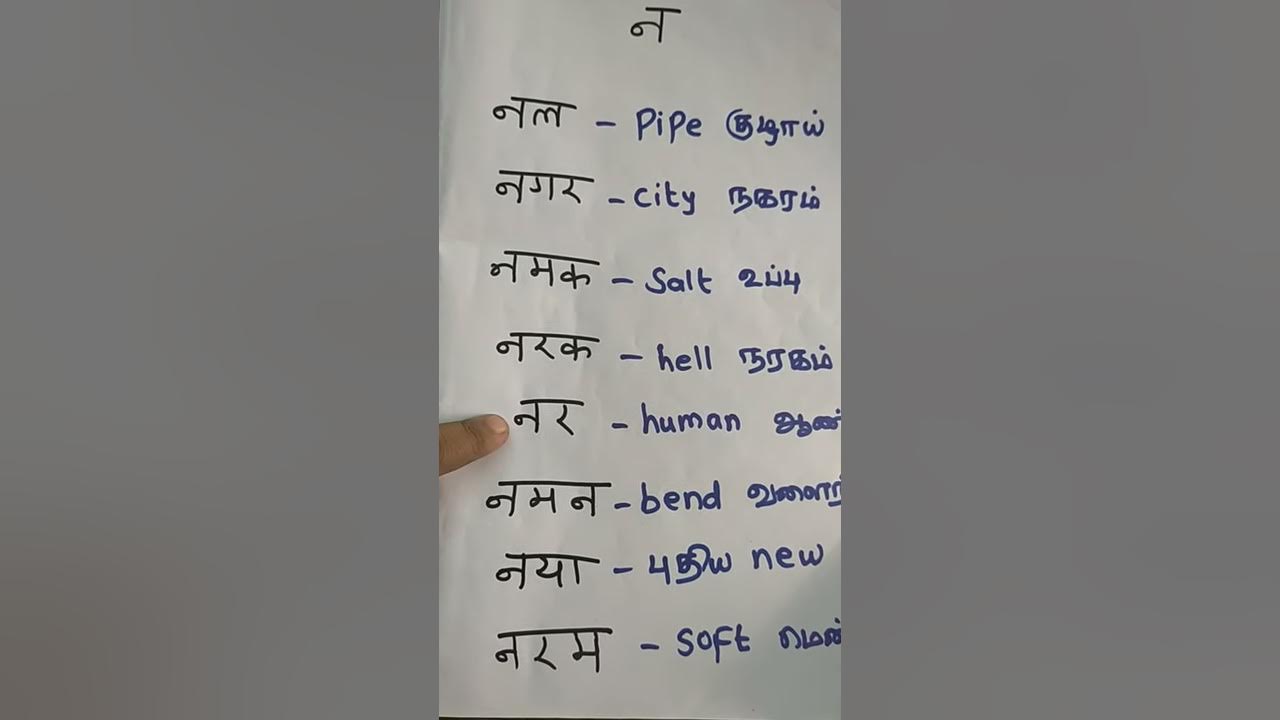 न
नल - Pipe குழாய்
नगर - city நகரம்
नमक - Salt உப்பு
नरक - hell நரகம்
नर - human ஆண்
नमन - bend
नया - புதிய new
नरम - soft